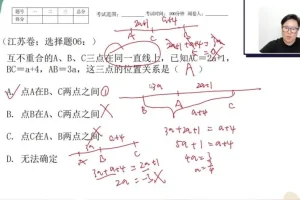 题号 一 二 三 总分
考试范围: 考试时间: 100分钟
(江苏卷: 选择题06: )
互不重合的A、B、C三点在同一直线上，已知AC=2a+1，
BC=a+4，AB=3a，这三点的位置关系是( A )
A. 点A在B、C两点之间
B. 点B在A、C两点之间
C. 点C在A、B两点之间
D. 无法确定
2a+1 a+4
A C B
3a 2a+1
B A C
a+4
3a+2a+1=a+4
5a+1=a+4
4a=3
3a a+4
A B C
3a+a+4=2a+1
2a=-3